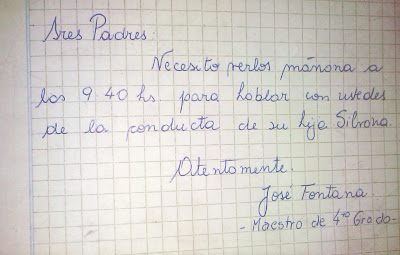 Sres Padres:
Necesito verlos mánana a
las 9 40 hs para hablar con ustedes
de la conducta de su hija Silvana.
Atentamente.
José Fontana
- Maestro de 4to Grado -